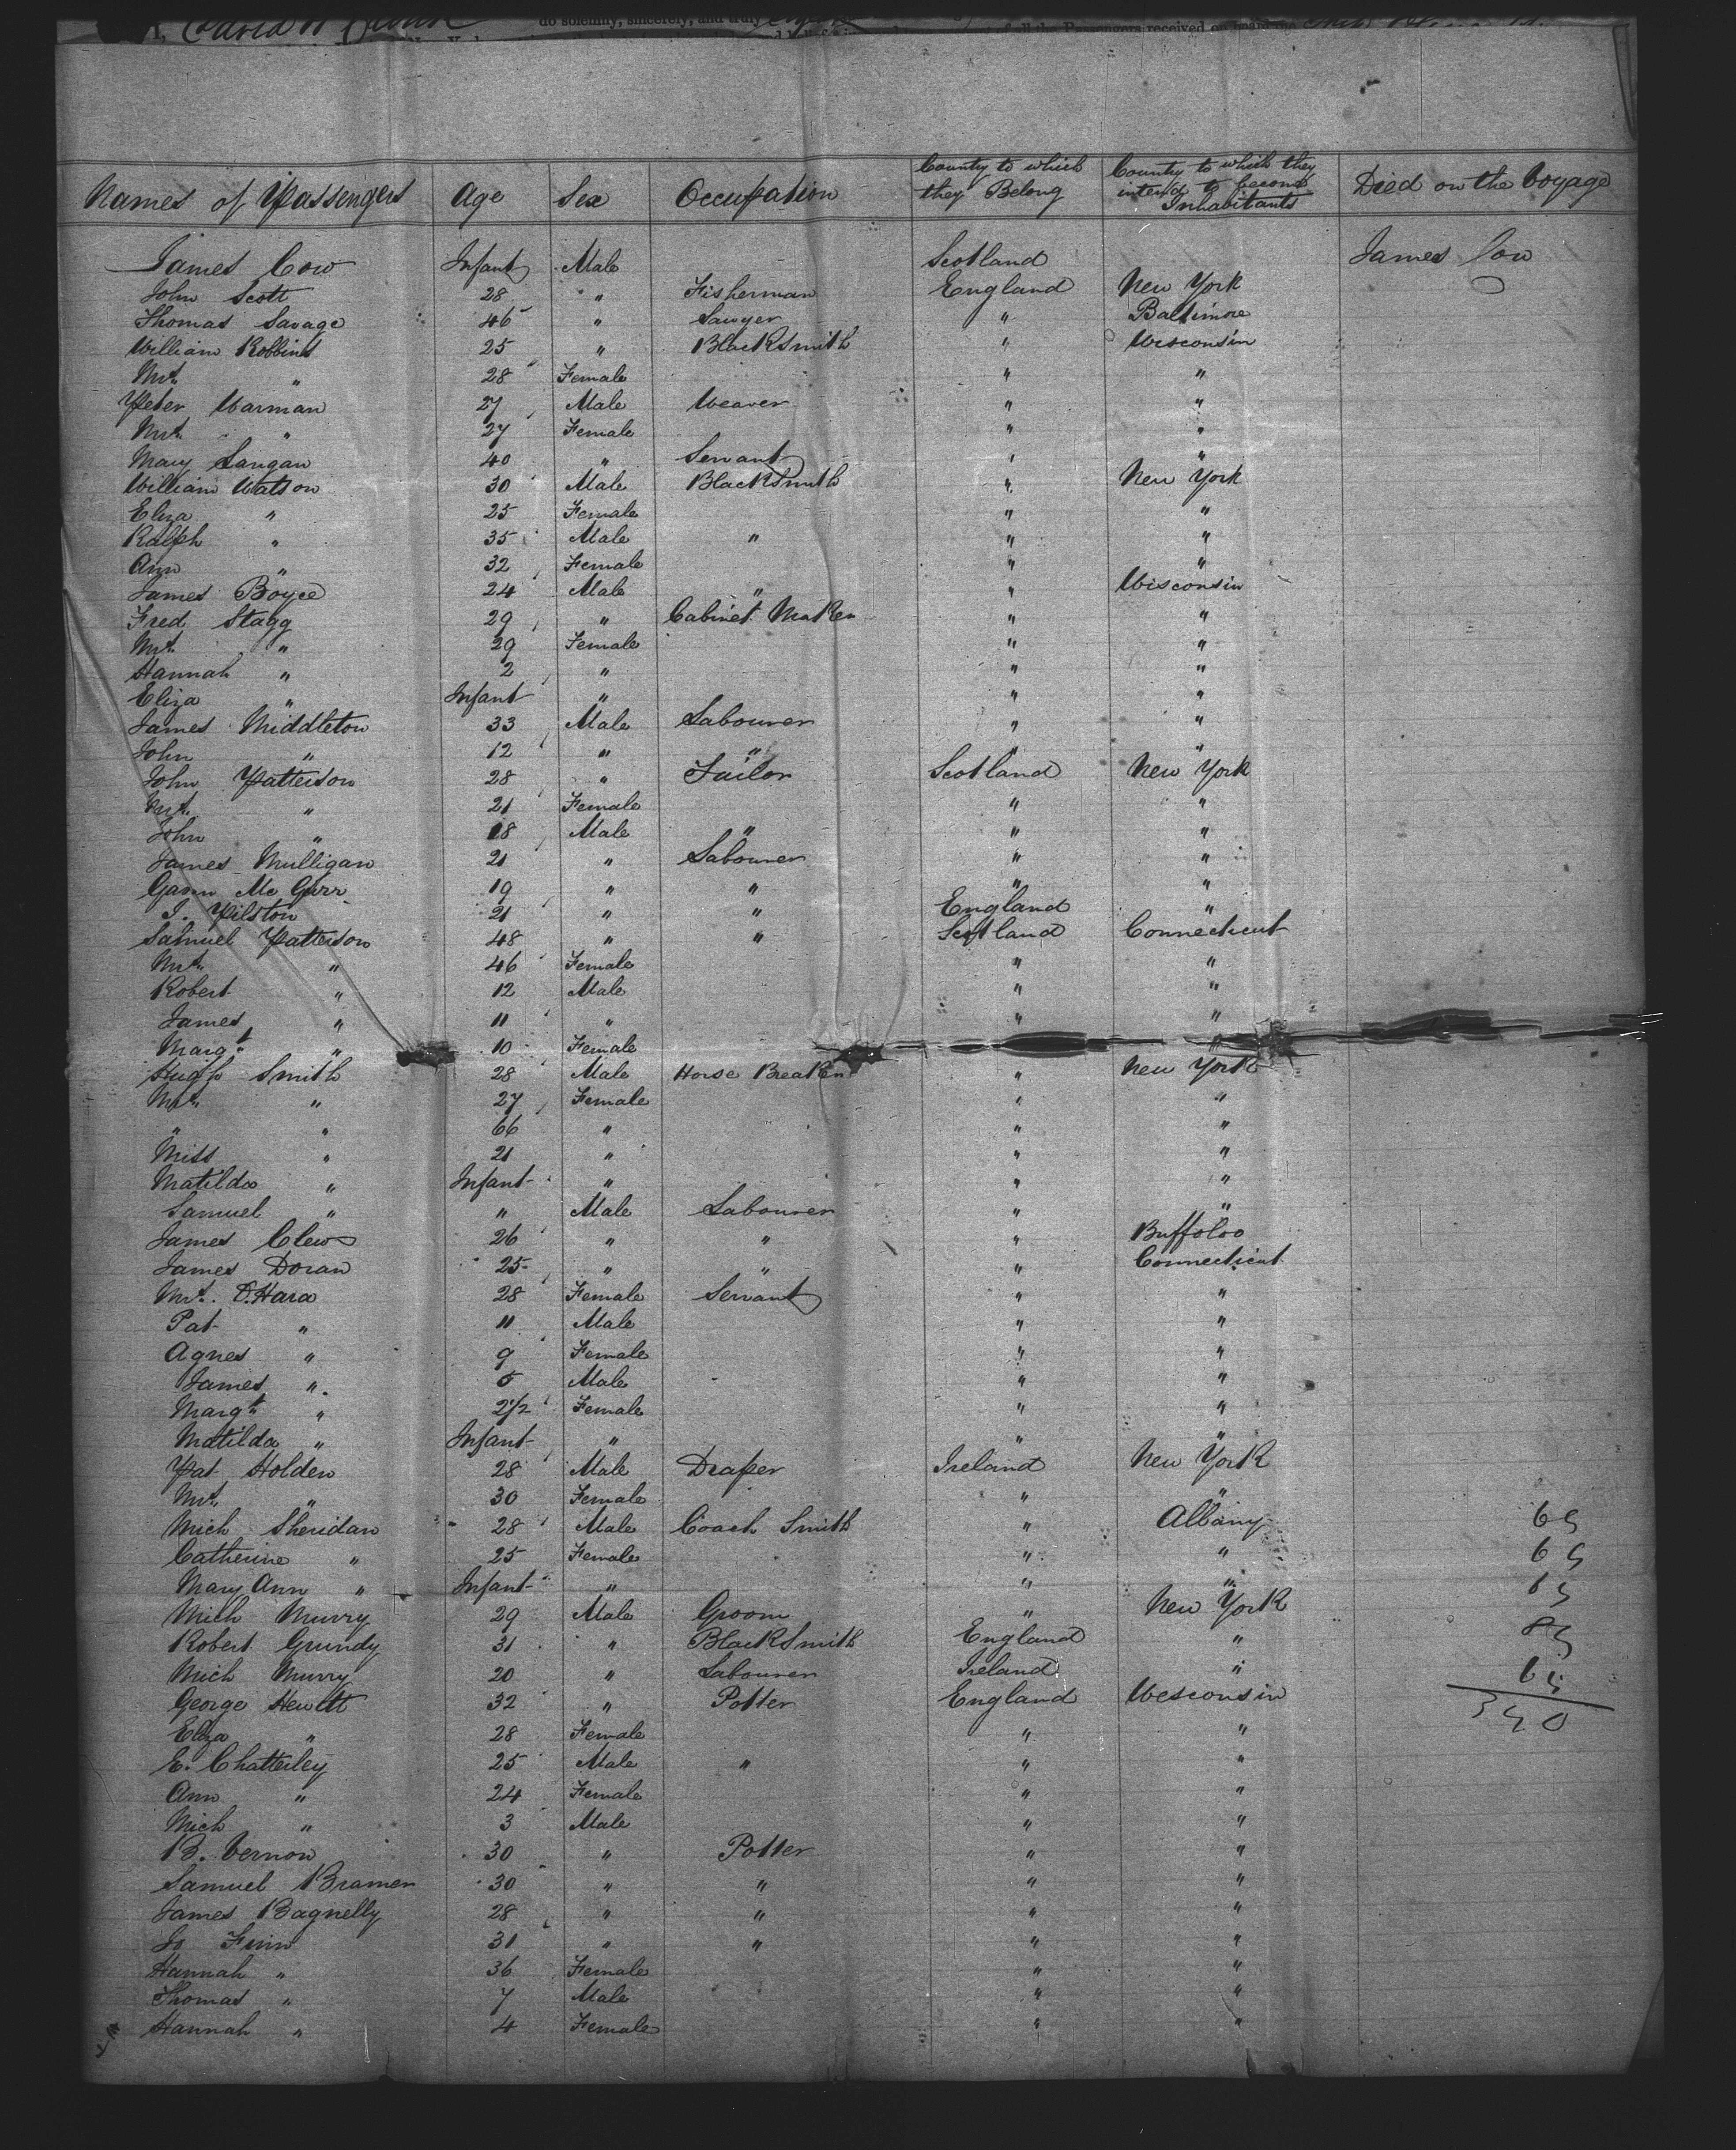 I, David
do solemnly, sincerely, and truly
of all the Passengers received on board the
Names of Passengers Age Sex Occupation County to which they Belong County to which they intend to become Inhabitants Died on the Voyage
James Cow Infant Male Scotland James Cow
John Scott 28 " Fisherman England New York
Thomas Savage 46 " Sawyer " Baltimore
William Robbins 25 " BlackSmith " Wisconsin
Mrs. " 28 Female " "
Peter Warman 27 Male Weaver " "
Mrs. " 27 Female " "
Mary Langan 40 " Servant " "
William Watson 30 Male BlackSmith " New York
Eliza " 25 Female " "
Ralph " 35 Male " " "
Ann " 32 Female " "
James Boyce 24 Male " " Wisconsin
Fred Stagg 29 " Cabinet Maker " "
Mrs. " 29 Female " "
Hannah " 2 " " "
Eliza " Infant " " "
James Middleton 33 Male Labourer " "
John " 12 " " " "
John Patterson 28 " Tailor Scotland New York
Mrs. " 21 Female " "
John " 18 Male " " "
James Mulligan 21 " Labourer " "
Mc Gurr 19 " " " "
J. Pilston 21 " " England "
Samuel Patterson 48 " " Scotland Connecticut
Mrs. " 46 Female " "
Robert " 12 Male " "
James " 11 " " "
Margt " 10 Female "
Hugh Smith 28 Male Horse Breaker " New York
Mrs. " 27 Female " "
" " 66 " " "
Miss " 21 " " "
Matilda " Infant " " "
Samuel " " Male Labourer " "
James Clews 26 " " " Buffoloo
James Doran 25 " " " Connecticut
Mrs. O.Hara 28 Female Servant " "
Pat " 11 Male " "
Agnes " 9 Female " "
James " 5 Male " "
Margt " 2 1/2 Female " "
Matilda " Infant " " "
Pat Holden 28 Male Draper Ireland New York
Mrs. " 30 Female " "
Mich Sheridan 28 Male Coach Smith " Albany 65
Catherine " 25 Female " " 65
Mary Ann " Infant " " " 65
Mich Murry 29 Male Groom " New York
Robert Grundy 31 " BlackSmith England " 85
Mich Murry 20 " Labourer Ireland " 65
George Hewitt 32 " Potter England Wesconsin
Eliza " 28 Female " " 350
E. Chatterley 25 Male " " "
Ann " 24 Female " "
Mich " 3 Male " "
B. Vernon 30 " Potter " "
Samuel Bramer 30 " " " "
James Bagnelly 28 " " " "
Jo Finn 31 " " " "
Hannah " 36 Female " "
Thomas " 7 Male " "
Hannah " 4 Female " "